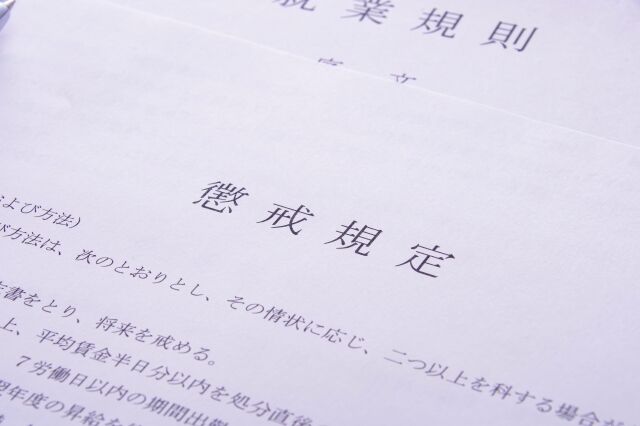 就業規則
前文
懲戒規定
よび方法）
び方法は、次のとおりとし、その情状に応じ、二つ以上を科する場合が
書をとり、将来を戒める。
上、平均賃金半日分以内を処分直後
７労働日以内の期間出勤
翌年度の昇給を